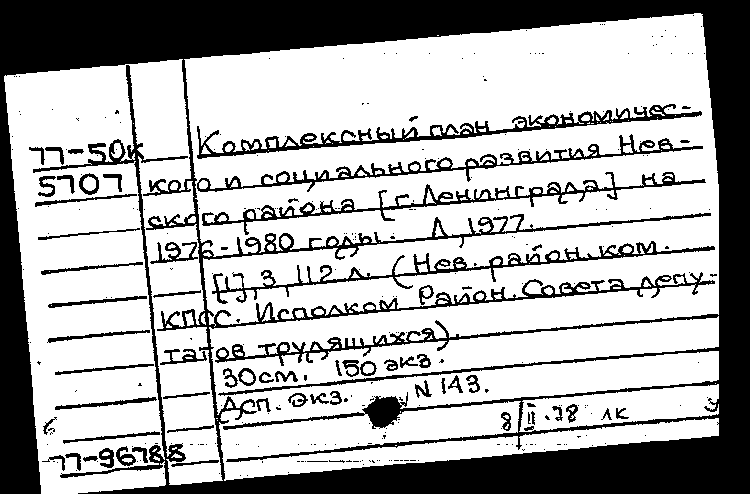 77-50к Комплексный план экономичес-
5707 кого и социального развития Нев-
ского района [г. Ленинграда] на
1976-1980 годы. Л, 1977.
[1], 3, 112 л. (Нев. район. ком.
КПСС. Исполком Район. Совета депу-
татов трудящихся).
30см. 150 экз.
Дсп. экз. N 143.
8/II-78 1К
77-96788